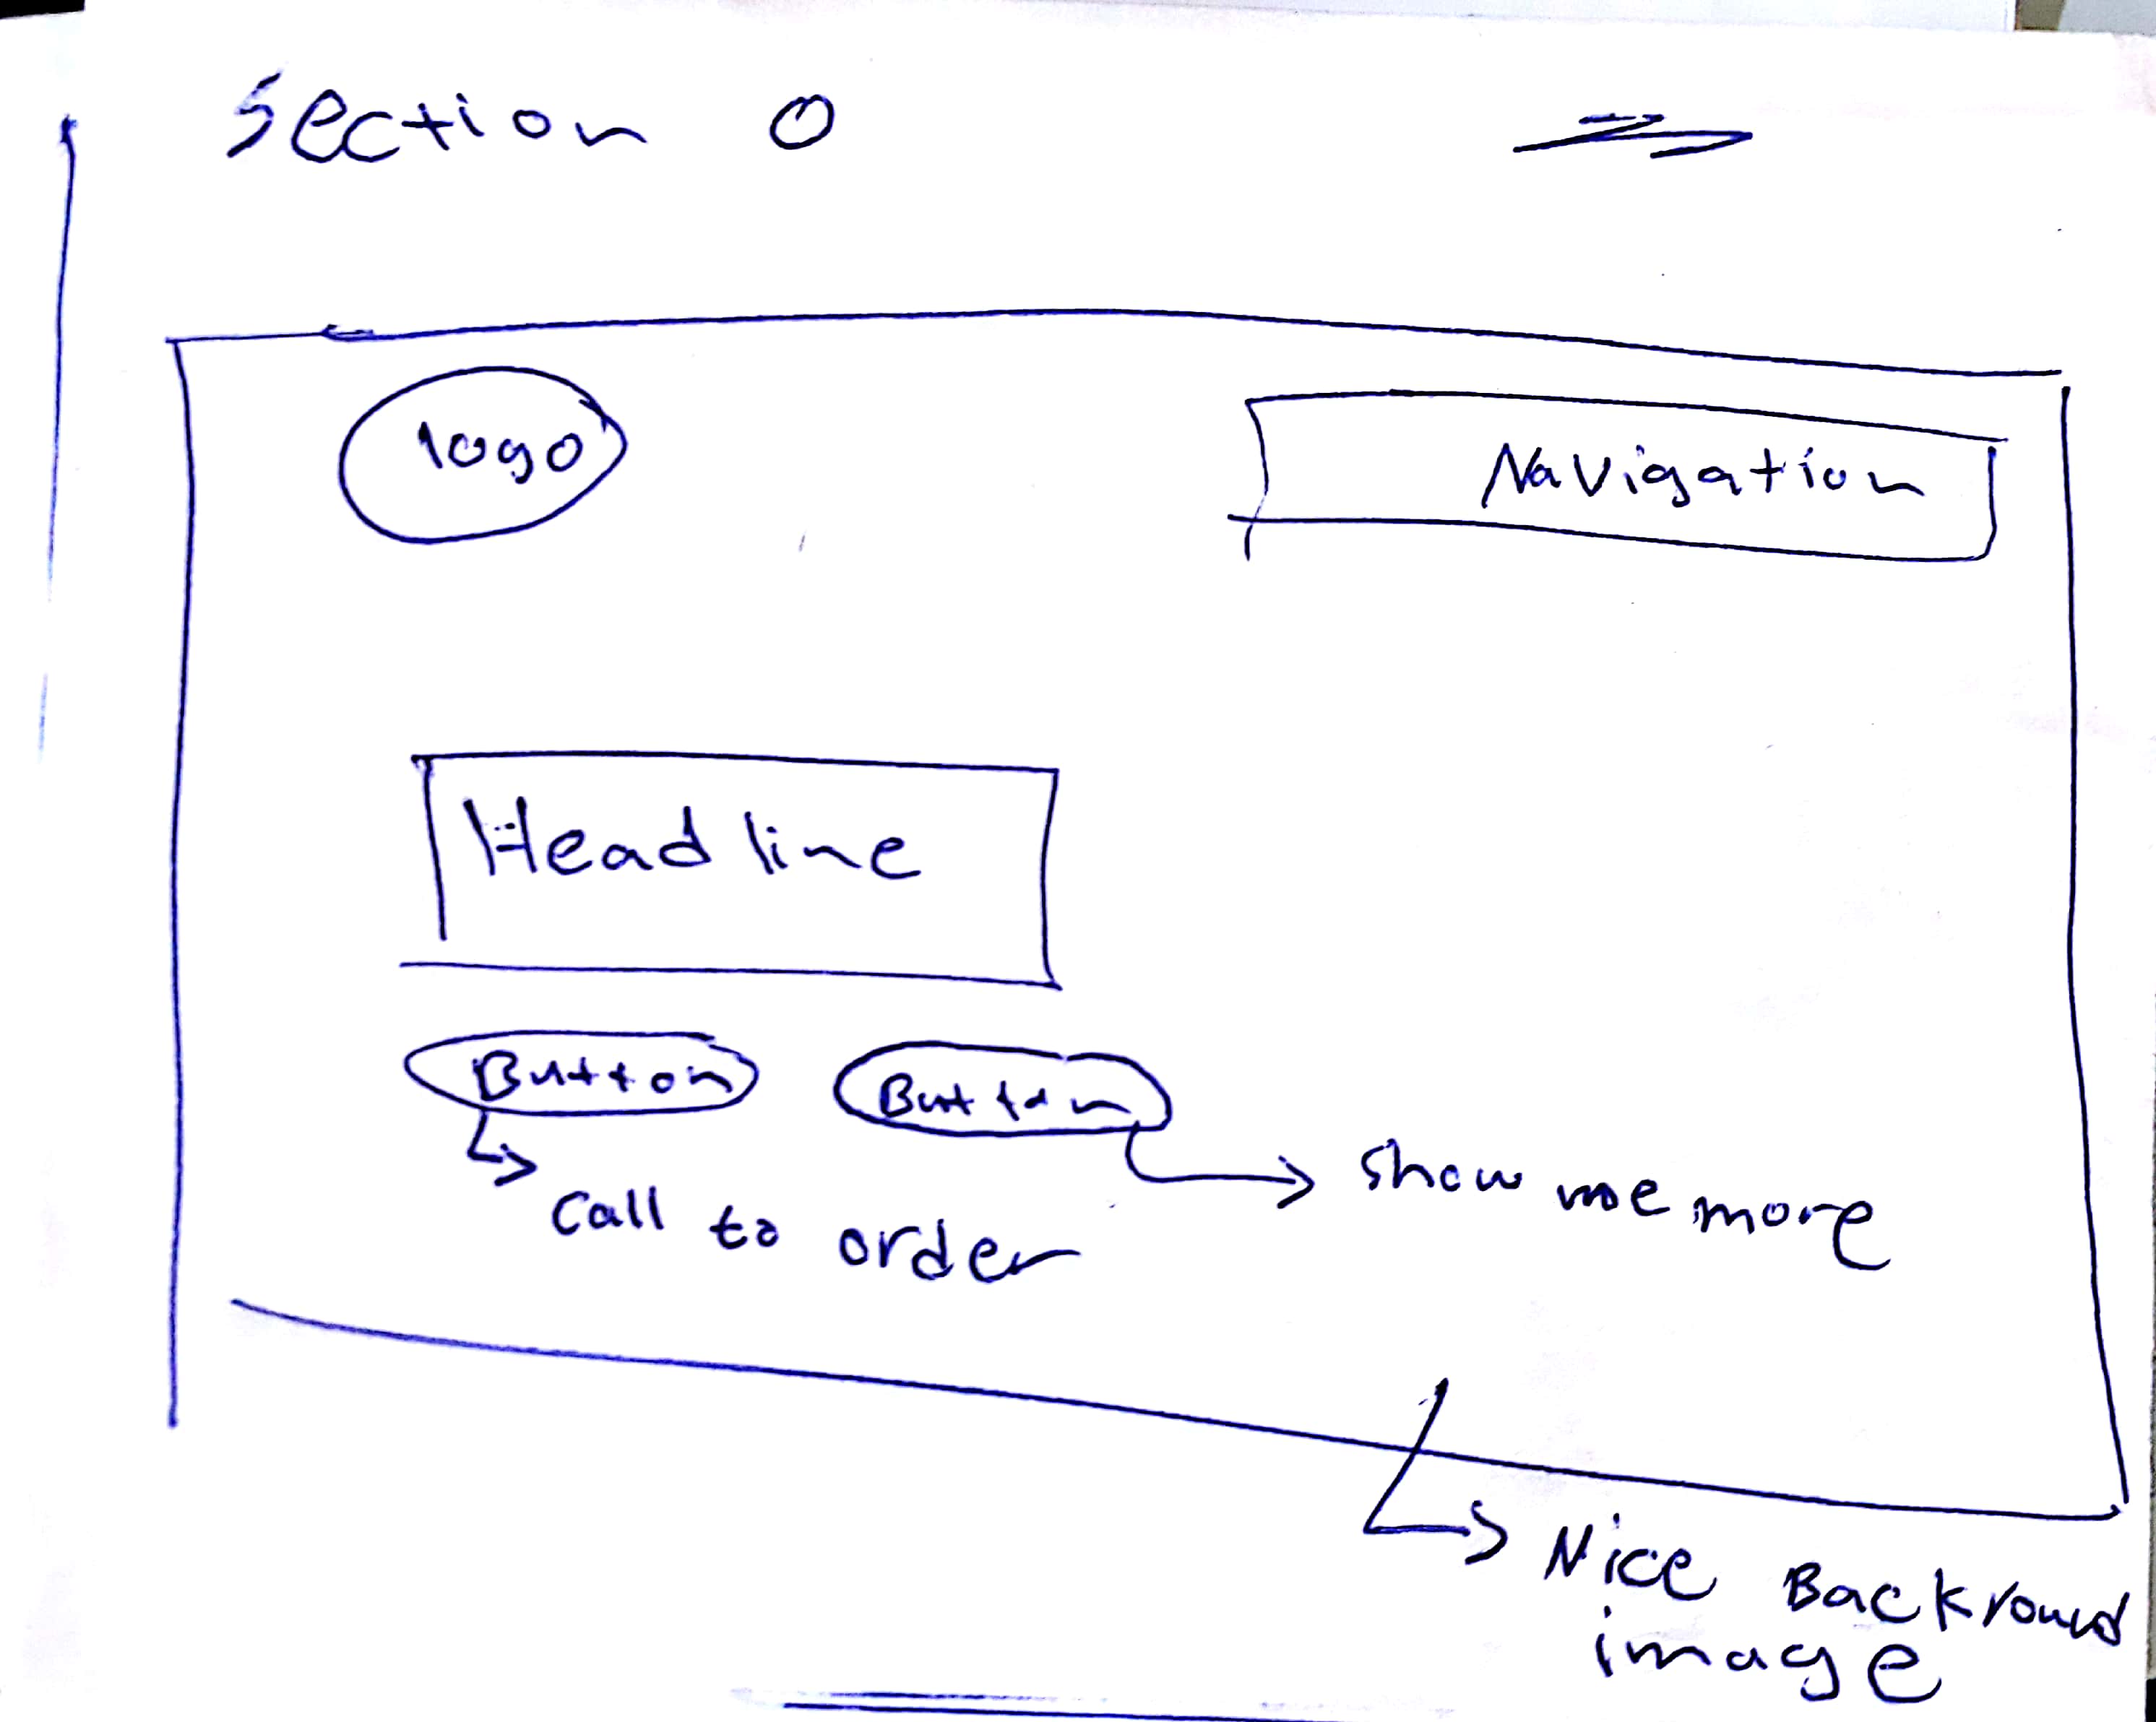 Section 0
logo
Navigation
Headline
Button
Button
call to order
show me more
Nice Backround
image